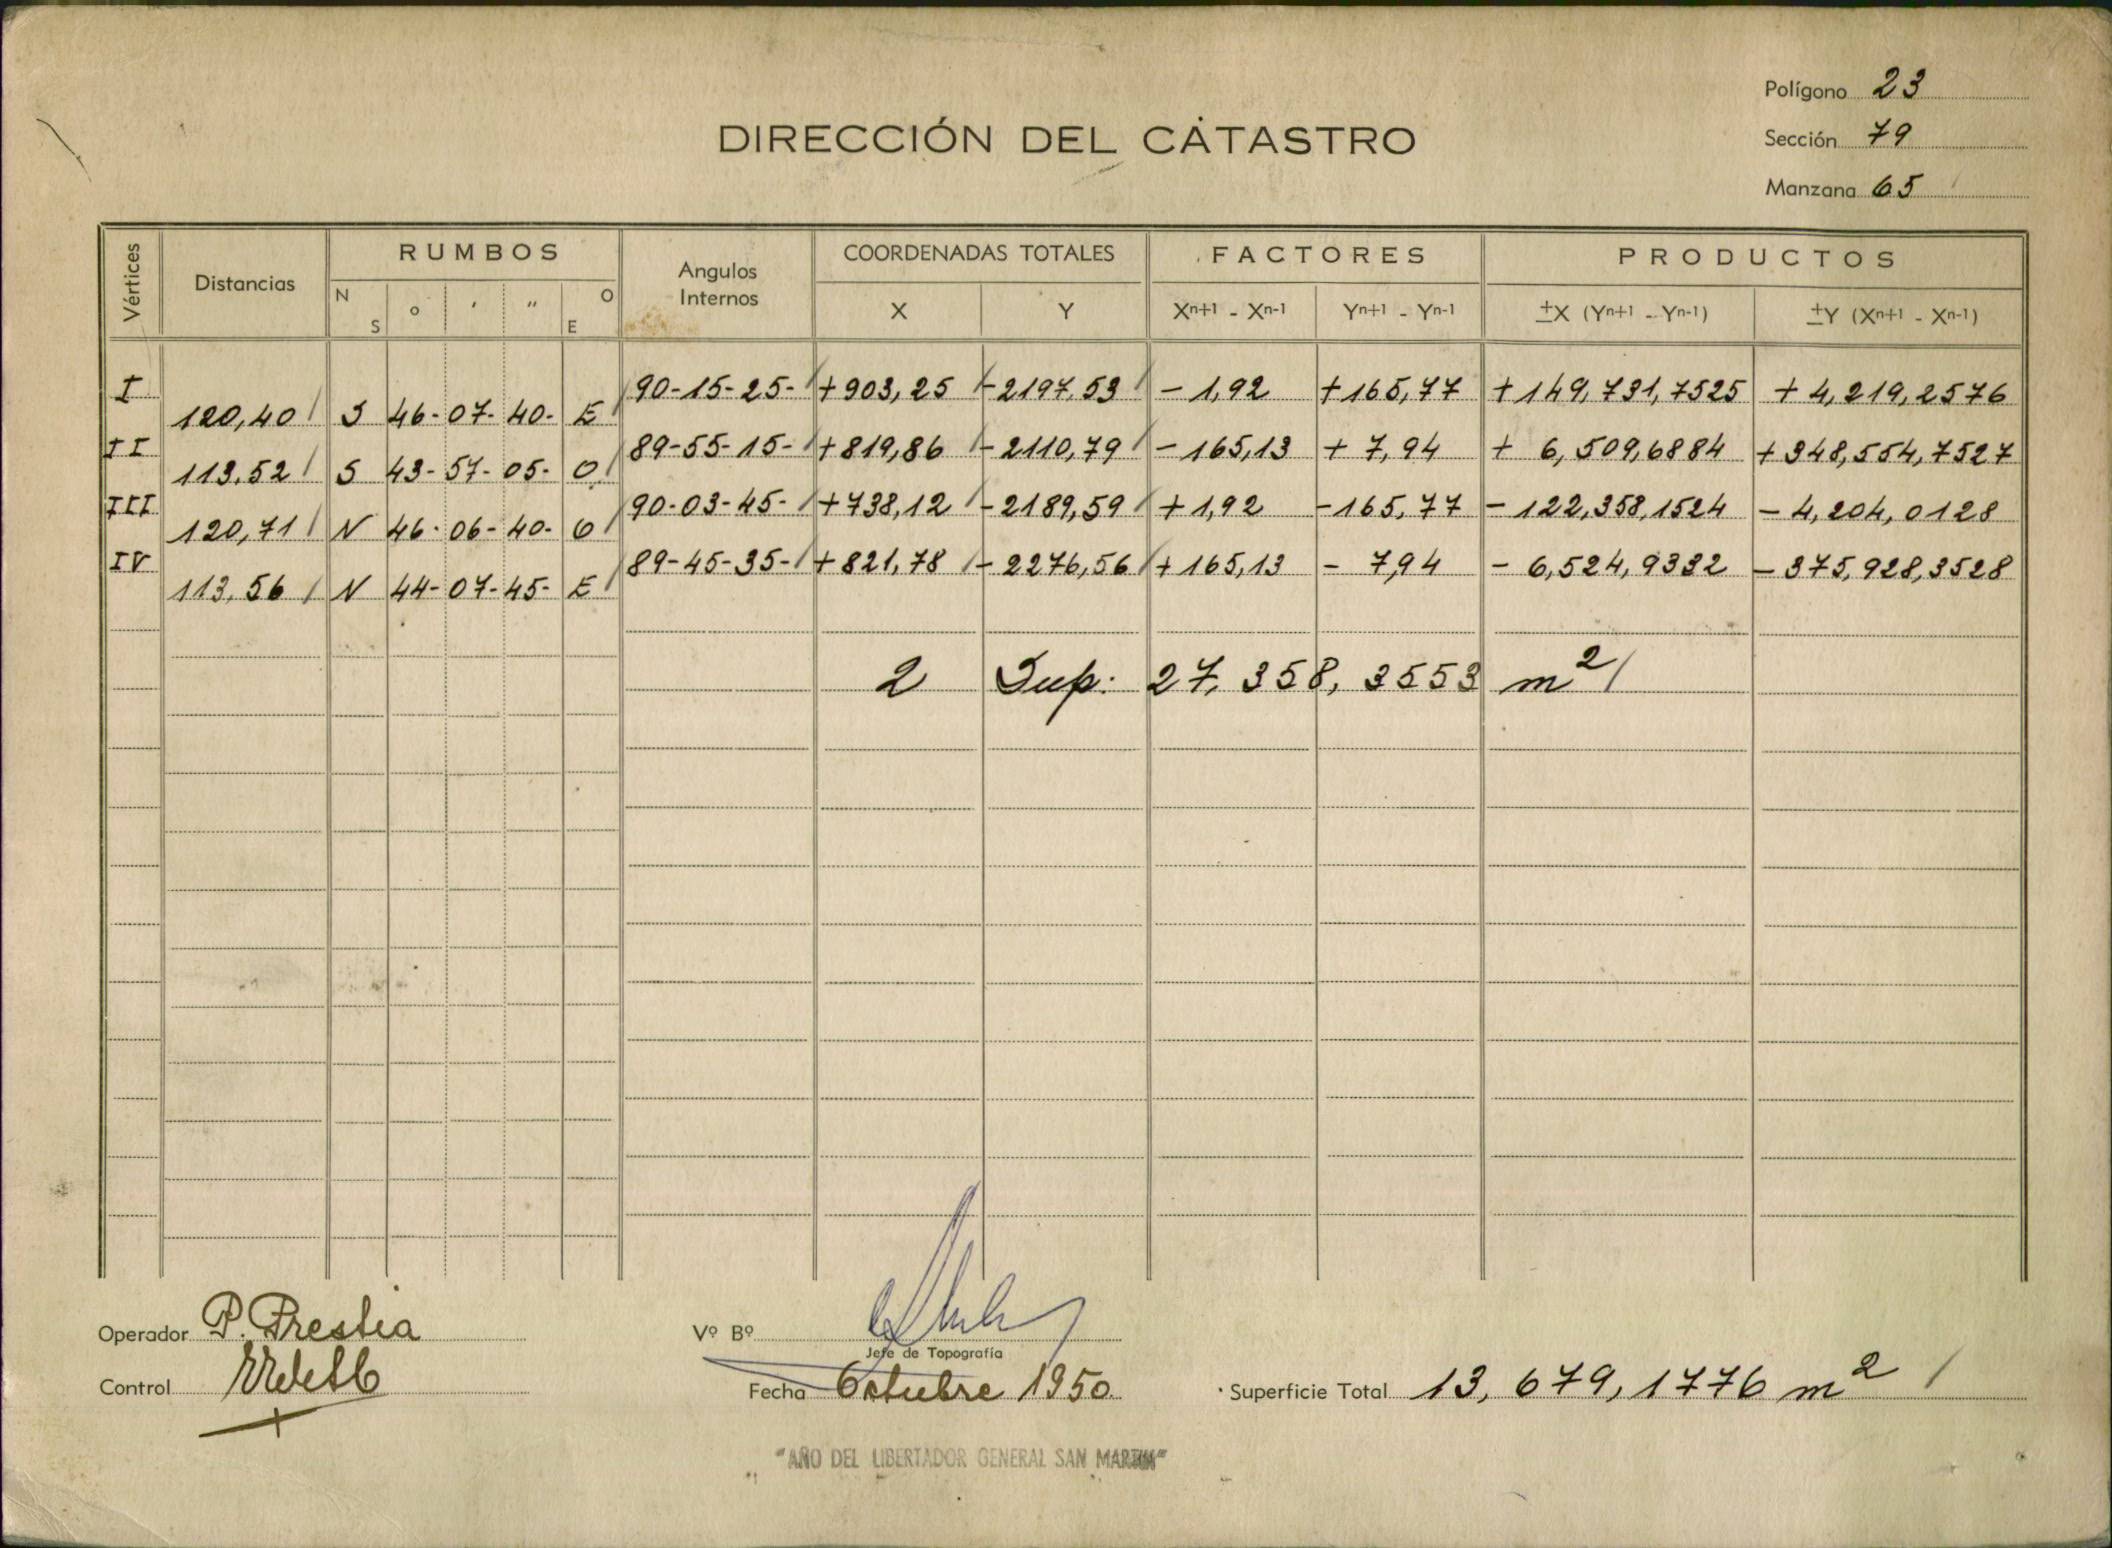 Polígono 23
DIRECCIÓN DEL CATASTRO
Sección 79
Manzana 65
Vértices Distancias RUMBOS Angulos Internos COORDENADAS TOTALES FACTORES PRODUCTOS
N S ° ' " O E X Y Xn+1 - Xn-1 Yn+1 - Yn-1 ±X (Yn+1 - Yn-1) ±Y (Xn+1 - Xn-1)
I 90-15-25- +903,25 -2197,53 -1,92 +165,77 +149,731,7525 +4,219,2576
120,40 S 46-07-40- E
II 89-55-15- +819,86 -2110,79 -165,13 +7,94 +6,509,6884 +348,554,7527
113,52 S 43-57-05- O
III 90-03-45- +738,12 -2189,59 +1,92 -165,77 -122,358,1524 -4,204,0128
120,71 N 46-06-40- O
IV 89-45-35- +821,78 -2276,56 +165,13 -7,94 -6,524,9332 -375,928,3528
113,56 N 44-07-45- E
2 Sup. 27,358,3553 m2
Operador P. Prestia Vº Bº
Jefe de Topografía
Control Fecha Octubre 1950 Superficie Total 13,679,1776 m2
"AÑO DEL LIBERTADOR GENERAL SAN MARTIN"